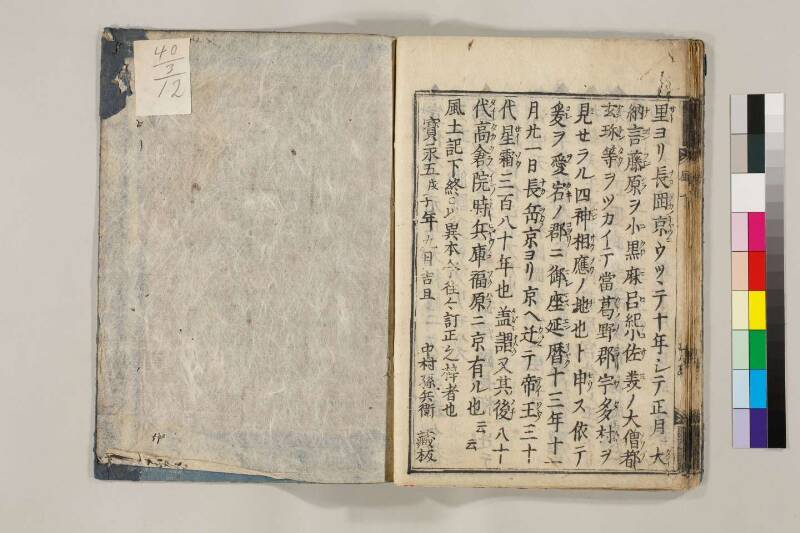 里ヨリ長岡京ウツヽテ十年ヽシテ正月大
納言藤原ヲ小黒麻呂紀小佐羨ノ大僧都
玄珎等ヲツカイテ當葛野郡宇多村ヲ
見セラル四神相應ノ地也ト申ス依テ
爰ヲ愛宕ノ郡ニ御座延暦十三年十一
月廿一日長岳京ヨリ京ヘ辻テ帝王三十
代星霜三百八十年也蓋謂又其後八十
代高倉院時兵庫福原ニ京有ル也云云
風土記下終以異本今往々訂正之梓者也
寳永五戊子年九月吉旦 中村孫兵衛 藏板
40
3
12